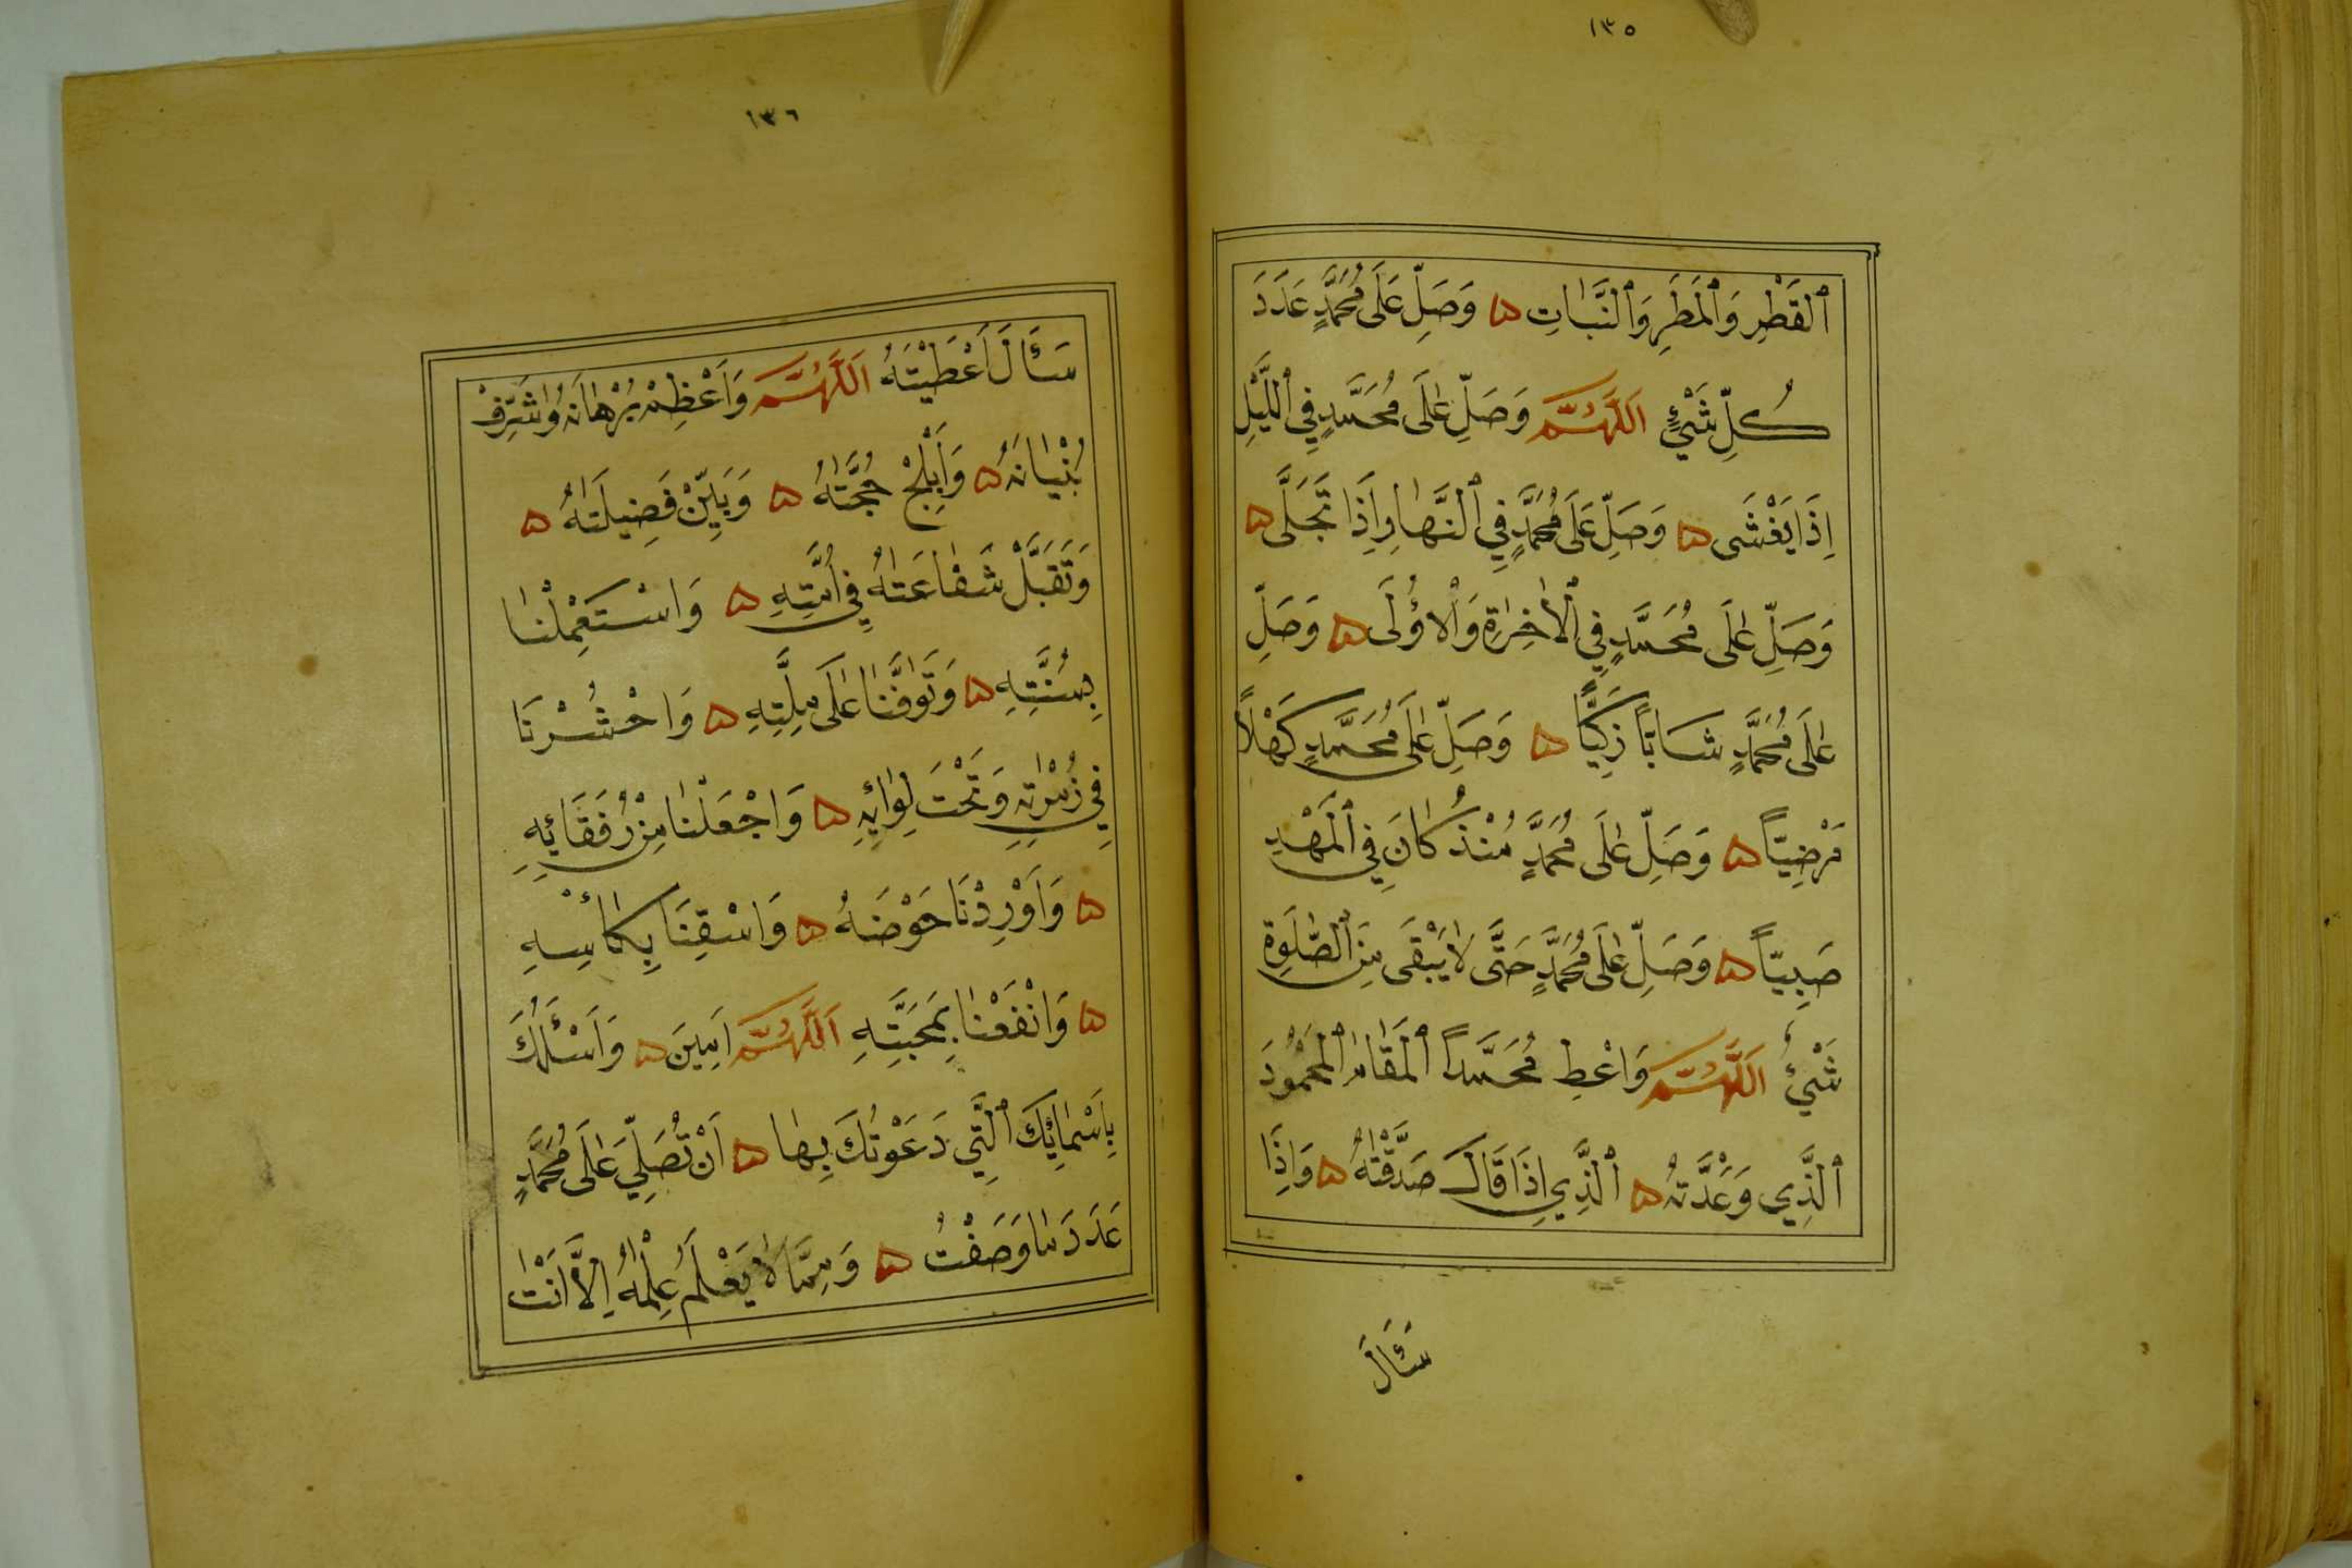 ١٣٥
اَلْقَطْرِ وَالْمَطَرِ وَالنَّبَاتِ ۵ وَصَلِّ عَلَى مُحَمَّدٍ عَدَدَ
كُلِّ شَيْئٍ اَللّٰهُمَّ وَصَلِّ عَلَى مُحَمَّدٍ فِي اللَّيْلِ
اِذَا يَغْشَى ۵ وَصَلِّ عَلَى مُحَمَّدٍ فِي النَّهَارِ اِذَا تَجَلَّى ۵
وَصَلِّ عَلَى مُحَمَّدٍ فِي الْاٰخِرَةِ وَالْاُوْلَى ۵ وَصَلِّ
عَلَى مُحَمَّدٍ شَابًّا زَكِيًّا ۵ وَصَلِّ عَلَى مُحَمَّدٍ كَهْلاً
مَرْضِيًّا ۵ وَصَلِّ عَلَى مُحَمَّدٍ مُنْذُ كَانَ فِي الْمَهْدِ
صَبِيًّا ۵ وَصَلِّ عَلَى مُحَمَّدٍ حَتَّى لاَ يَبْقَى مِنَ الصَّلٰوةِ
شَيْئٌ اَللّٰهُمَّ وَاعْطِ مُحَمَّداً الْمَقَامَ الْمَحْمُودَ
اَلَّذِي وَعَدْتَّهُ ۵ اَلَّذِي اِذَا قَالَ صَدَّقْتَهُ ۵ وَاِذَا
سَئَالَ
١٣٦
سَئَالَ اَعْطَيْتَهُ اَللّٰهُمَّ وَاَعْظِمْ بُرْهَانَهُ وَاشَرِّفْ
بُنْيَانَهُ ۵ وَاَبْلِجْ حُجَّتَهُ ۵ وَبَيِّنْ فَضِيلَتَهُ ۵
وَتَقَبَّلْ شَفَاعَتَهُ فِي اُمَّتِهِ ۵ وَاسْتَعْمِلْنَا
بِسُنَّتِهِ ۵ وَتَوَفَّنَا عَلَى مِلَّتِهِ ۵ وَاحْشُرْنَا
فِي زُمْرَتِهِ وَتَحْتَ لِوَائِهِ ۵ وَاجْعَلْنَا مِنْ رُفَقَائِهِ
۵ وَاَوْرِدْنَا حَوْضَهُ ۵ وَاسْقِنَا بِكَأْسِهِ
۵ وَانْفَعْنَا بِمَحَبَّتِهِ اَللّٰهُمَّ اٰمِينَ ۵ وَاَسْئَلُكَ
بِاَسْمَائِكَ الَّتِي دَعَوْتُكَ بِهَا ۵ اَنْ تُصَلِّيَ عَلَى مُحَمَّدٍ
عَدَدَ مَا وَصَفْتُ ۵ وَمِمَّا لاَ يَعْلَمُ عِلْمَهُ اِلاَّ اَنْتَ